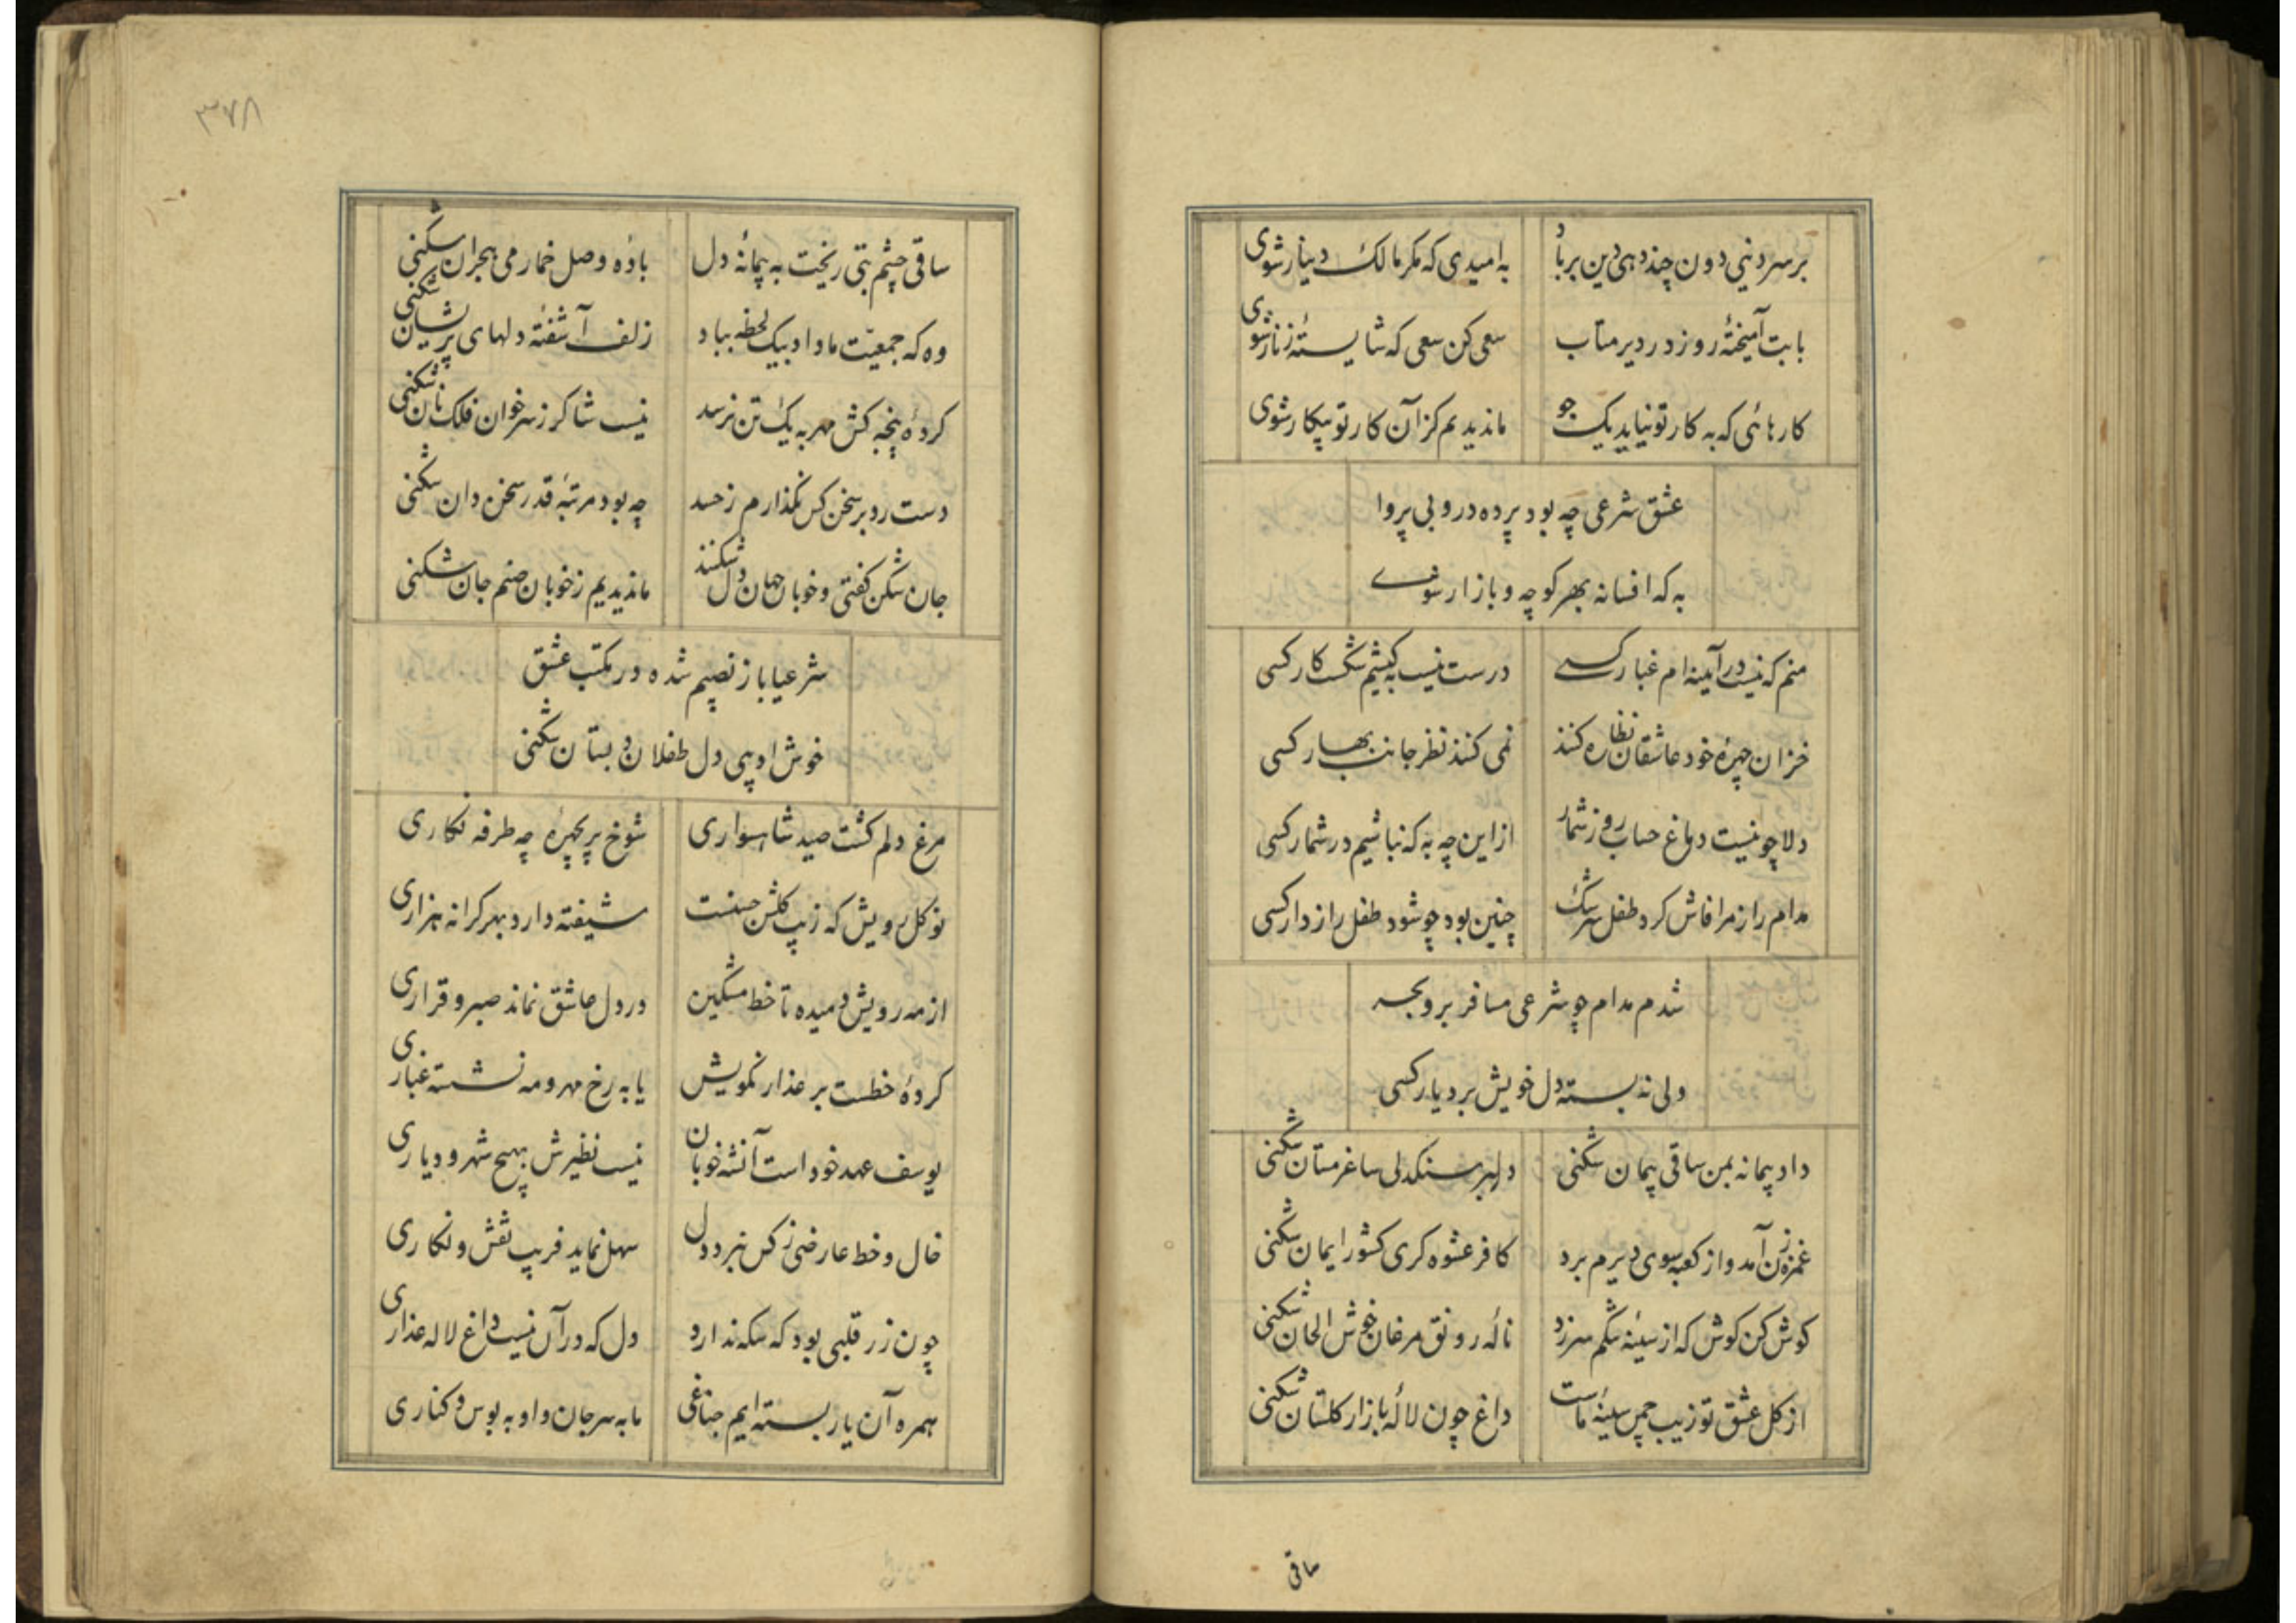 بر سر دنیی دون چند دهی دین بر باد به امیدی که مکر مالک دینار شوی
با بت آمیخته روز در دیر متاب سعی کن سعی که شایستهٔ زنار شوی
کارهائی که به کار تو نیاید یک جو ماندیدیم کزآن کار تو بیکار شوی
عشق شرعی چه بود پرده در و بی پروا
به که افسانه بهر کوچه و بازار شوی
منم که نیست در آینه ام غبار کسی درست نیست به کیشم شکست کار کسی
خزان چهرهٔ خود عاشقان نظاره کنند نمی کنند نظر جانب بهار کسی
دلا چو نیست دماغ حساب روز شمار از این چه به که نباشیم در شمار کسی
مدام راز مرا فاش کرد طفل سرشک چنین بود چو شود طفل رازدار کسی
شدم مدام چو شرعی مسافر بر و بحر
ولی نه بسته دل خویش بر دیار کسی
داد پیمانه بمن ساقی پیمان شکنی دلبر سنکدلی ساغر مستان شکنی
غمزه زن آمد و از کعبه سوی دیرم برد کافر عشوه کری کشور ایمان شکنی
کوش کن کوش که از سینه تنکم سر زد نالهٔ رونق مرغان خوش الحان شکنی
از کل عشق تو زیب چمن سینهٔ ماست داغ چون لالهٔ بازار کلستان شکنی
ساقی
۳۷۸
ساقی چشم بتی ریخت به پیمانهٔ دل بادهٔ وصل خمار می هجران شکنی
وه که جمعیت ما داد بیک لحظه بباد زلف آشفتهٔ دلهای پریشان شکنی
کردهٔ پنجه کش مهر به یک تن نرسد نیست شاکر ز سر خوان فلک نان شکنی
دست رد بر سخن کس نکذارم ز حسد چه بود مرتبهٔ قدر سخن دان شکنی
جان شکن کفتی و خوبان جهان دل شکنند ماندیدیم ز خوبان صنم جان شکنی
شرعیا باز نصیبم شده در مکتب عشق
خوش ادیبی دل طفلان دبستان شکنی
مرغ دلم کشت صید شاهسواری شوخ پریچهرهٔ چه طرفه نکاری
نو کل رویش که زیب کلشن حسنست شیفته دارد بهر کرانه هزاری
از مه رویش دمیده تا خط مشکین در دل عاشق نماند صبر و قراری
کردهٔ خطست بر عذار نکویش یا به رخ مهر و مه نشسته غباری
یوسف عهد خود است آن شه خوبان نیست نظیرش بهیچ شهر و دیاری
خال و خط عارضی ز کس نبرد دل سهل نماید فریب نقش و نکاری
چون زر قلبی بود که سکه ندارد دل که در آن نیست داغ لاله عذاری
همره آن یار بسته ایم جناغی ما به سر جان و او به بوس و کناری